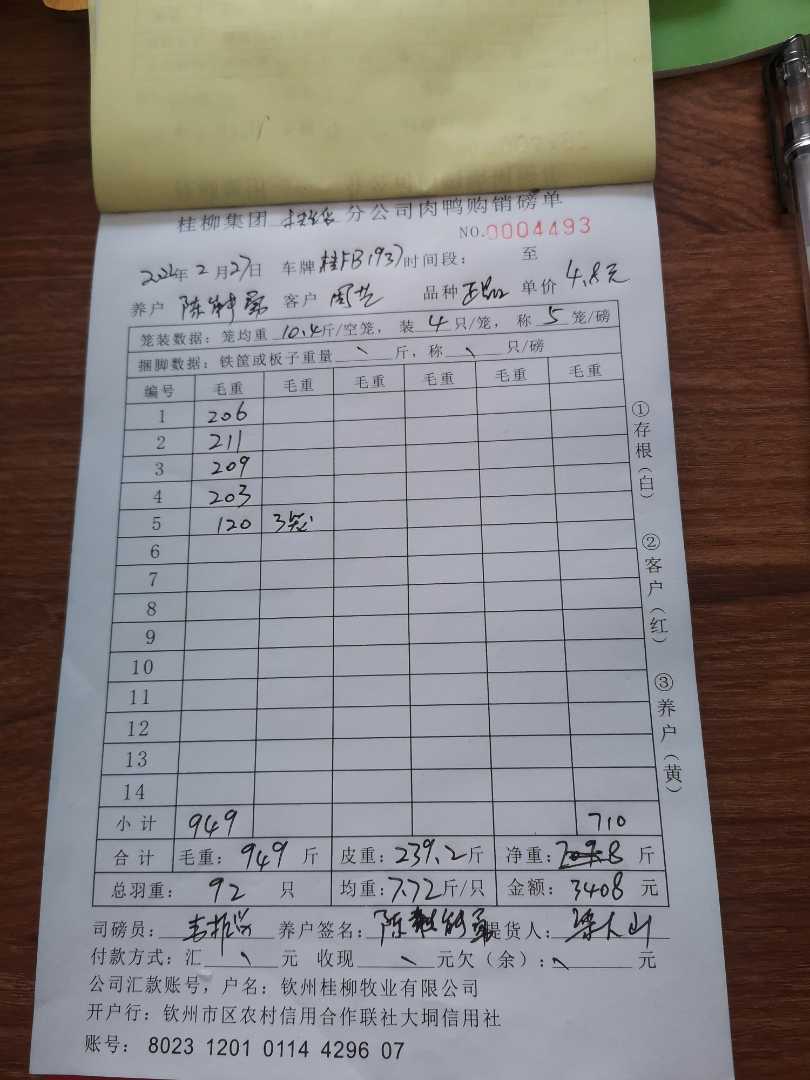 桂柳集团 分公司肉鸭购销磅单
NO.0004493
年2月27日 车牌桂FB1937时间段: 至
养户 陈 客户 周 品种 正品 单价 4.8元
笼装数据: 笼均重 10.4斤/空笼, 装 4 只/笼, 称 5 笼/磅
捆脚数据: 铁筐或板子重量 、 斤, 称 、 只/磅
编号 毛重 毛重 毛重 毛重 毛重 毛重
1 206
2 211
3 209
4 203
5 120 3笼
6
7
8
9
10
11
12
13
14
小计 949 710
合计 毛重: 949 斤 皮重: 239.2斤 净重: 斤
总羽重: 92 只 均重: 7.72斤/只 金额: 3408 元
司磅员: 养户签名: 陈 提货人:
付款方式: 汇 、 元 收现 、 元欠(余): 、 元
公司汇款账号, 户名: 钦州桂柳牧业有限公司
开户行: 钦州市区农村信用合作联社大垌信用社
账号: 8023 1201 0114 4296 07
①存根(白)
②客户(红)
③养户(黄)